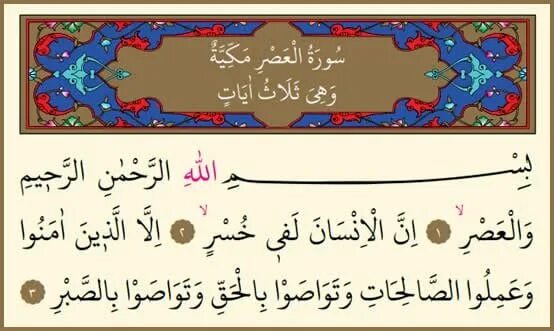 سُورَةُ الْعَصْرِ مَكِّيَّةٌ
وَهِيَ ثَلَاثُ اٰيَاتٍ
بِسْمِ اللّٰهِ الرَّحْمٰنِ الرَّحٖيمِ
وَالْعَصْرِۙ ﴿١﴾ اِنَّ الْاِنْسَانَ لَفٖي خُسْرٍۙ ﴿٢﴾ اِلَّا الَّذٖينَ اٰمَنُوا
وَعَمِلُوا الصَّالِحَاتِ وَتَوَاصَوْا بِالْحَقِّ وَتَوَاصَوْا بِالصَّبْرِ ﴿٣﴾